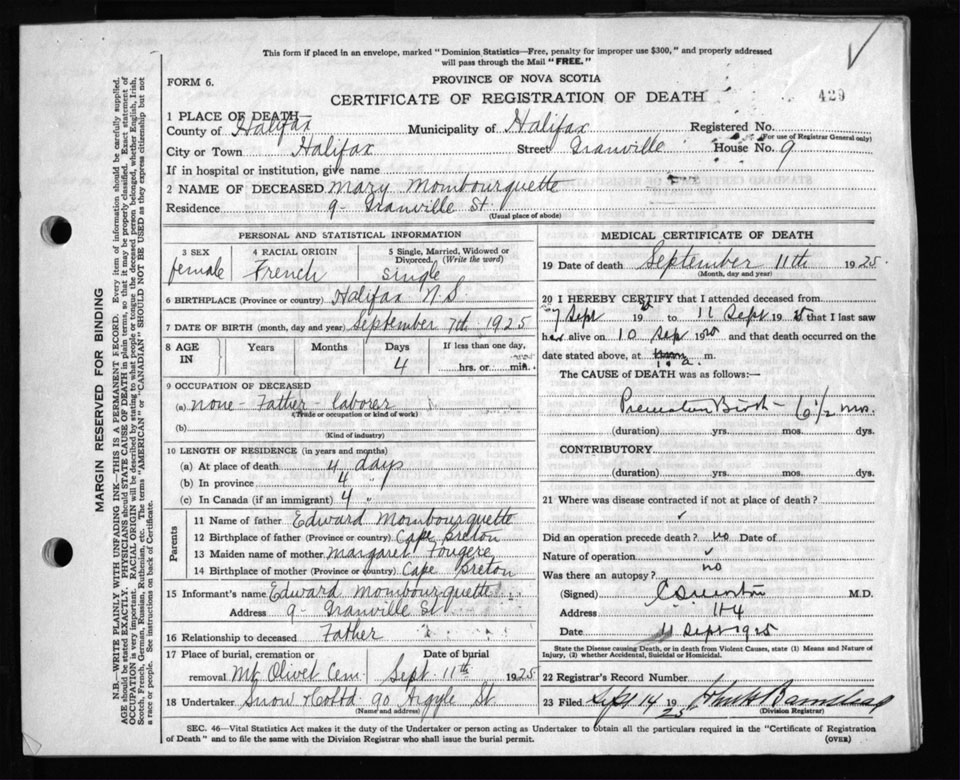 This form if placed in an envelope, marked "Dominion Statistics—Free, penalty for improper use $300," and properly addressed
will pass through the Mail "FREE."
FORM 6.
PROVINCE OF NOVA SCOTIA
CERTIFICATE OF REGISTRATION OF DEATH
429
1 PLACE OF DEATH
County of Halifax Municipality of Halifax Registered No.
(For use of Registrar General only)
City or Town Halifax Street Granville House No. 9
If in hospital or institution, give name
2 NAME OF DECEASED Mary Mombourquette
Residence 9- Granville St
(Usual place of abode)
PERSONAL AND STATISTICAL INFORMATION
3 SEX female
4 RACIAL ORIGIN French
5 Single, Married, Widowed or Divorced. (Write the word) single
6 BIRTHPLACE (Province or country) Halifax N.S.
7 DATE OF BIRTH (month, day and year) September 7th 1925
8 AGE IN Years Months Days 4 If less than one day, hrs. or min.
9 OCCUPATION OF DECEASED
(a) none - Father - laborer
(Trade or occupation or kind of work)
(b)
(Kind of industry)
10 LENGTH OF RESIDENCE (in years and months)
(a) At place of death 4 days
(b) In province 4 "
(c) In Canada (if an immigrant) 4 "
Parents
11 Name of father Edward Mombourquette
12 Birthplace of father (Province or country) Cape Breton
13 Maiden name of mother Margaret Fougere
14 Birthplace of mother (Province or country) Cape Breton
15 Informant's name Edward Mombourquette
Address 9- Granville St
16 Relationship to deceased Father
17 Place of burial, cremation or removal Mt Olivet Cem. Date of burial Sept. 11th 1925
18 Undertaker Snow & Co Ltd 90 Argyle St.
(Name and address)
MEDICAL CERTIFICATE OF DEATH
19 Date of death September 11th 1925.
(Month, day and year)
20 I HEREBY CERTIFY that I attended deceased from
7 Sept 19 to 11 Sept 1925 that I last saw
her alive on 10 Sept 1925 and that death occurred on the
date stated above, at 1 a. m.
The CAUSE of DEATH was as follows:—
Premature Birth - 6 1/2 mos.
(duration) yrs. mos. dys.
CONTRIBUTORY
(duration) yrs. mos. dys.
21 Where was disease contracted if not at place of death?
Did an operation precede death? no Date of
Nature of operation
Was there an autopsy? no
(Signed) M.D.
Address
Date 11 Sept 1925
State the Disease causing Death, or in death from Violent Causes, state (1) Means and Nature of
Injury, (2) whether Accidental, Suicidal or Homicidal.
22 Registrar's Record Number
23 Filed Sept 14 1925
(Division Registrar)
SEC. 46—Vital Statistics Act makes it the duty of the Undertaker or person acting as Undertaker to obtain all the particulars required in the "Certificate of Registration
of Death" and to file the same with the Division Registrar who shall issue the burial permit. (OVER)
MARGIN RESERVED FOR BINDING
N.B.—WRITE PLAINLY WITH UNFADING INK—THIS IS A PERMANENT RECORD. Every item of information should be carefully supplied.
AGE should be stated EXACTLY. PHYSICIANS should STATE CAUSE OF DEATH in plain terms, so that it may be properly classified. Exact statement of
OCCUPATION is very important. RACIAL ORIGIN will be described by stating to what people or tongue the deceased person belonged, whether English, Irish,
Scotch, French, German, Russian, Ruthenian, etc. The terms "AMERICAN" or "CANADIAN" SHOULD NOT BE USED as they express citizenship but not
a race or people. See instructions on back of Certificate.